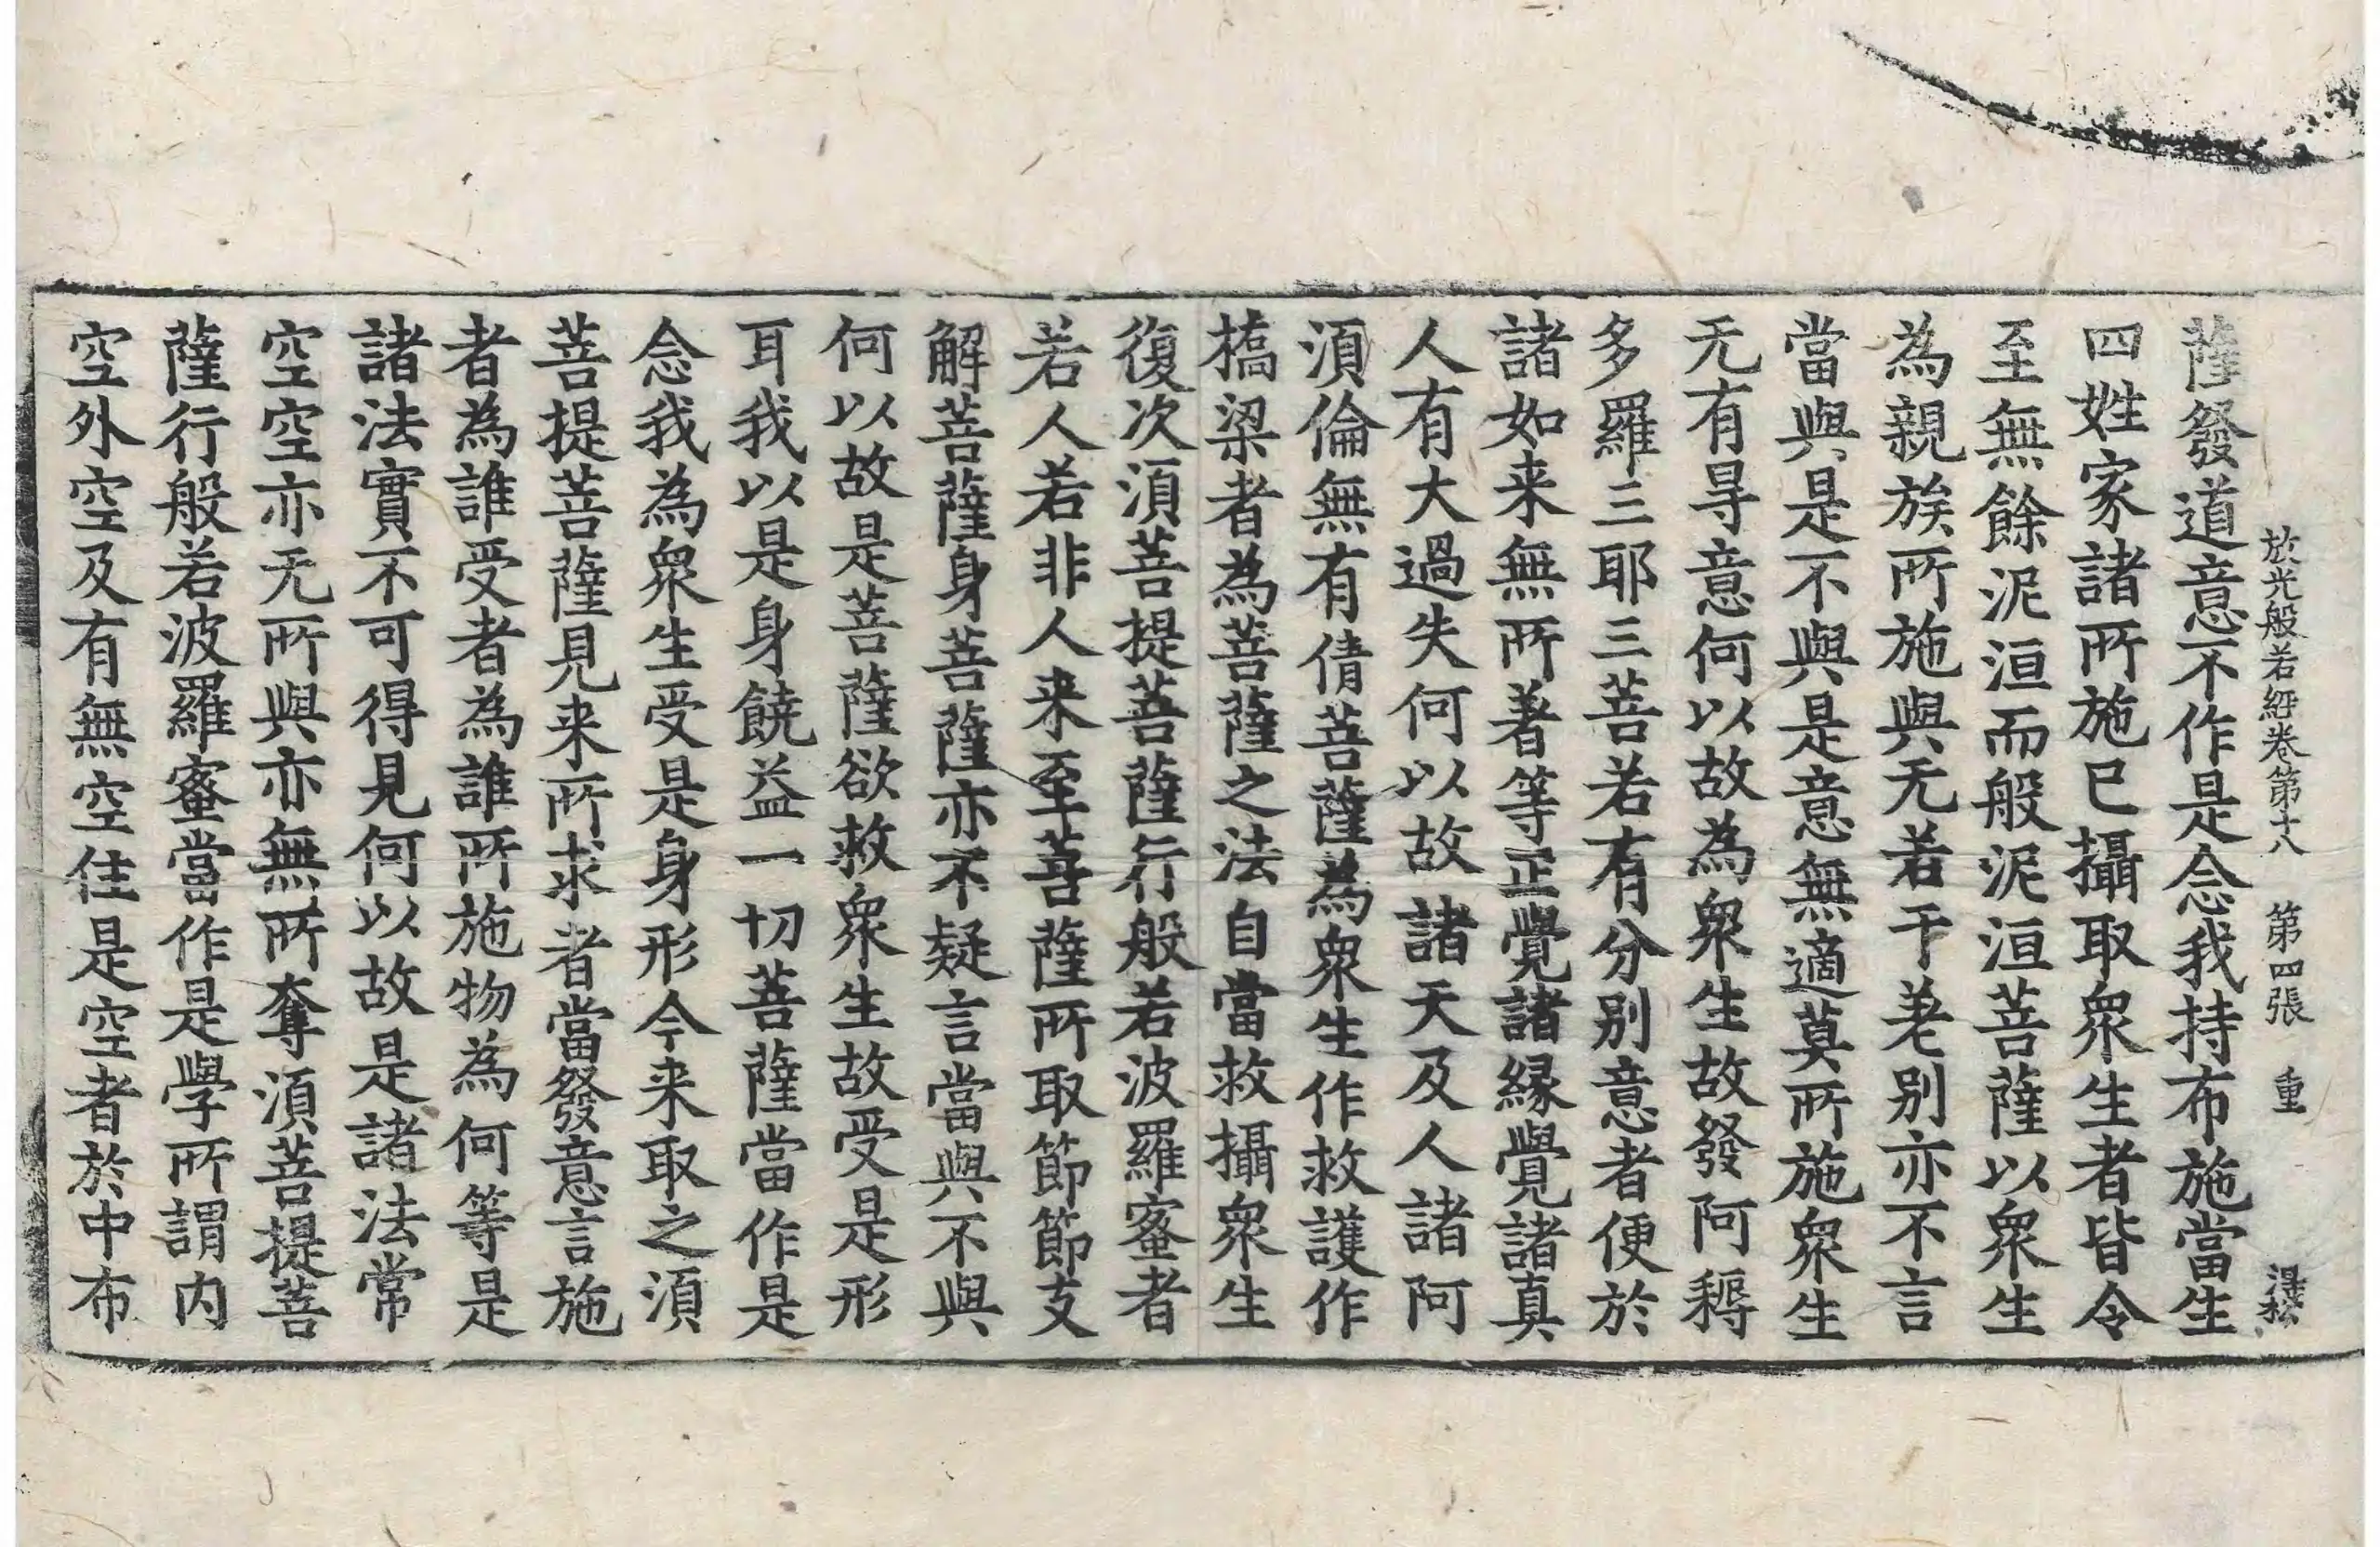 放光般若經卷第十八 第四張 重
薩發道意不作是念我持布施當生
四姓家諸所施已攝取衆生者皆令
至無餘泥洹而般泥洹菩薩以衆生
為親族所施與无若干差别亦不言
當與是不與是意無適莫所施衆生
无有㝵意何以故為衆生故發阿耨
多羅三耶三菩若有分别意者便於
諸如来無所著等正覺諸縁覺諸真
人有大過失何以故諸天及人諸阿
須倫無有倩菩薩為衆生作救護作
橋梁者為菩薩之法自當救攝衆生
復次須菩提菩薩行般若波羅蜜者
若人若非人来至菩薩所取節節支
解菩薩身菩薩亦不疑言當與不與
何以故是菩薩欲救衆生故受是形
耳我以是身饒益一切菩薩當作是
念我為衆生受是身形今来取之須
菩提菩薩見来所求者當發意言施
者為誰受者為誰所施物為何等是
諸法實不可得見何以故是諸法常
空空亦无所與亦無所奪須菩提菩
薩行般若波羅蜜當作是學所謂内
空外空及有無空住是空者於中布